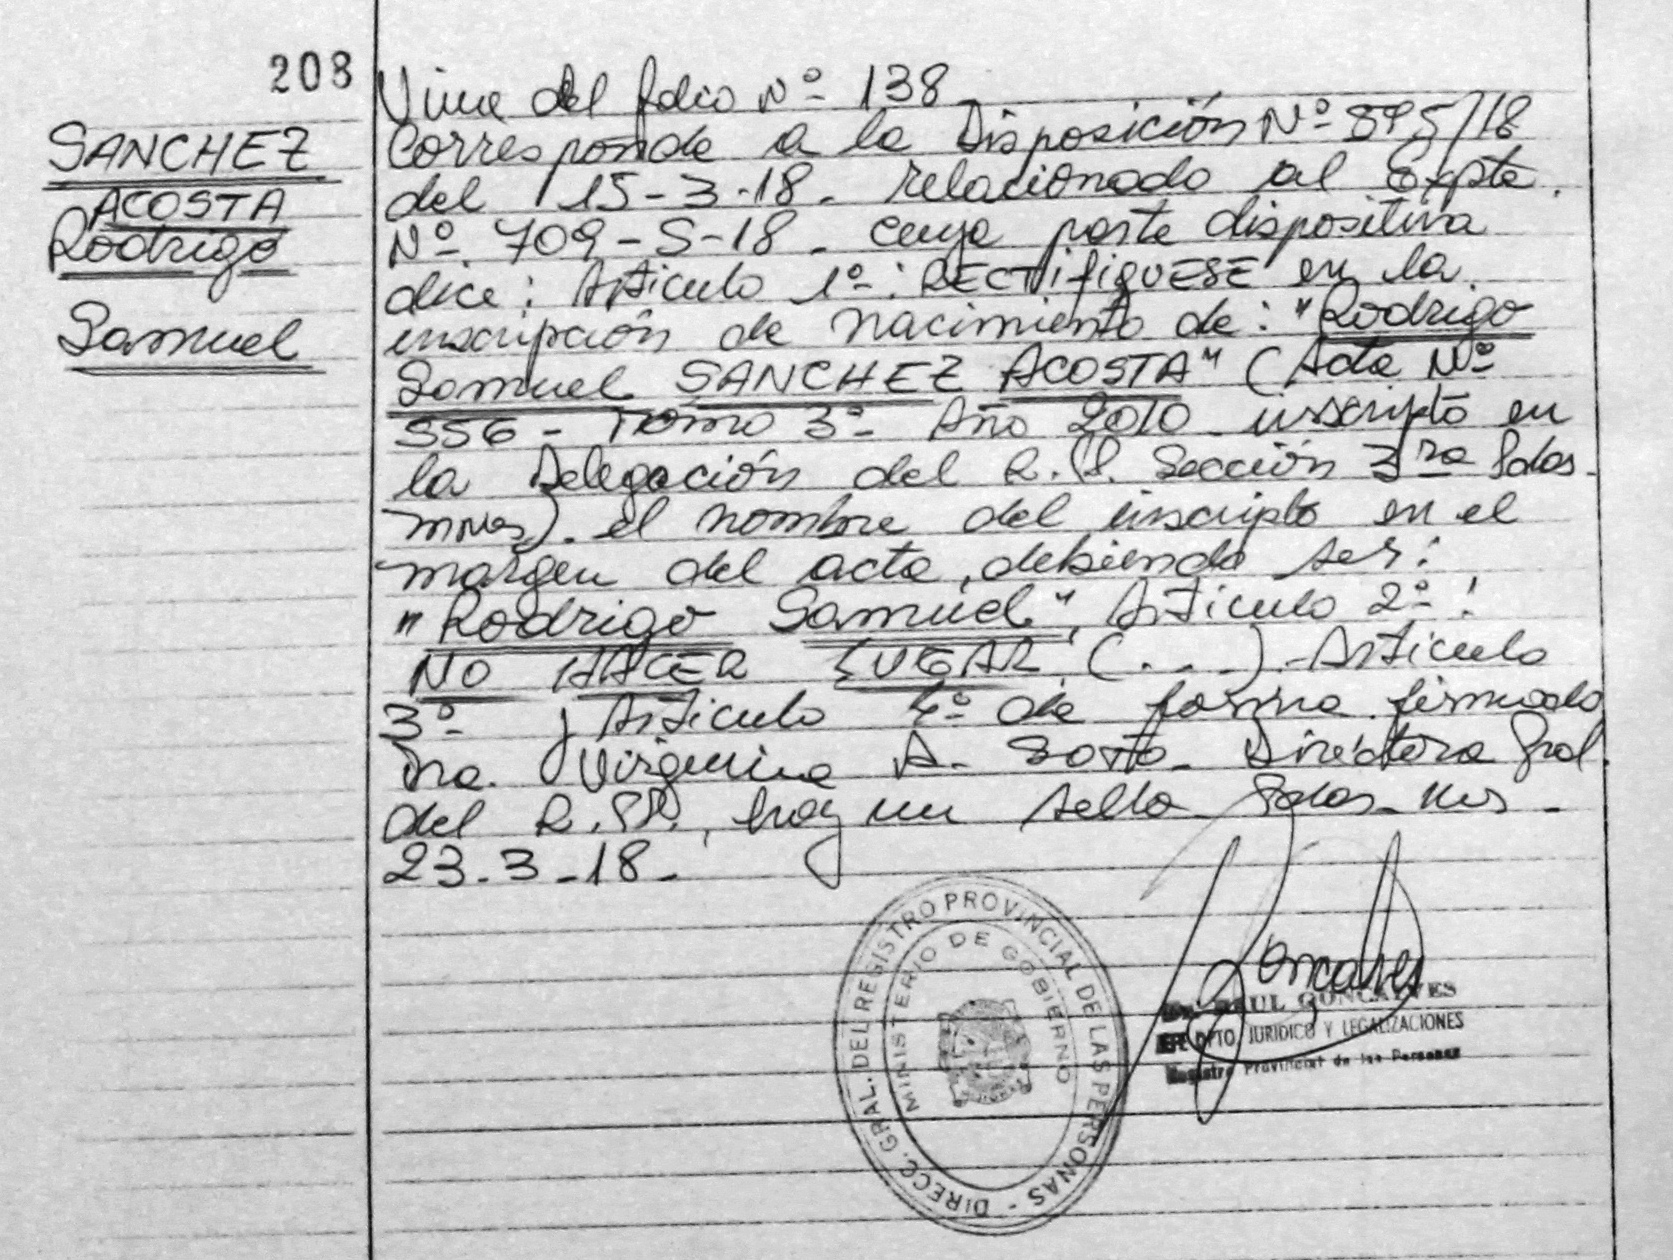 208
SANCHEZ
ACOSTA
Rodrigo
Samuel
Viene del folio Nº 138
Corresponde a la Disposición Nº 895/18
del 15-3-18. relacionado al Expte.
Nº 709-S-18. cuya parte dispositiva
dice: Articulo 1º: RECTIFIQUESE en la
inscripción de nacimiento de: "Rodrigo
Samuel SANCHEZ ACOSTA" (Acta Nº
556 - Tomo 3º Año 2010 inscripto en
la Delegación del R.P. Sección 3ra Pdas.
Mnes). el nombre del inscripto en el
margen del acta, debiendo ser:
"Rodrigo Samuel", Articulo 2º:
NO HACER LUGAR (...). Articulo
3º y Articulo 4º de forma firmado
Dra. Virginia A. Soto. Directora Gral.
del R.PP., hay un sello Pdas. Mns.
23.3.18.
DIRECC. GRAL. DEL REGISTRO PROVINCIAL DE LAS PERSONAS -
MINISTERIO DE GOBIERNO
RAUL GONCALVES
DPTO. JURIDICO Y LEGALIZACIONES
Registro Provincial de las Personas